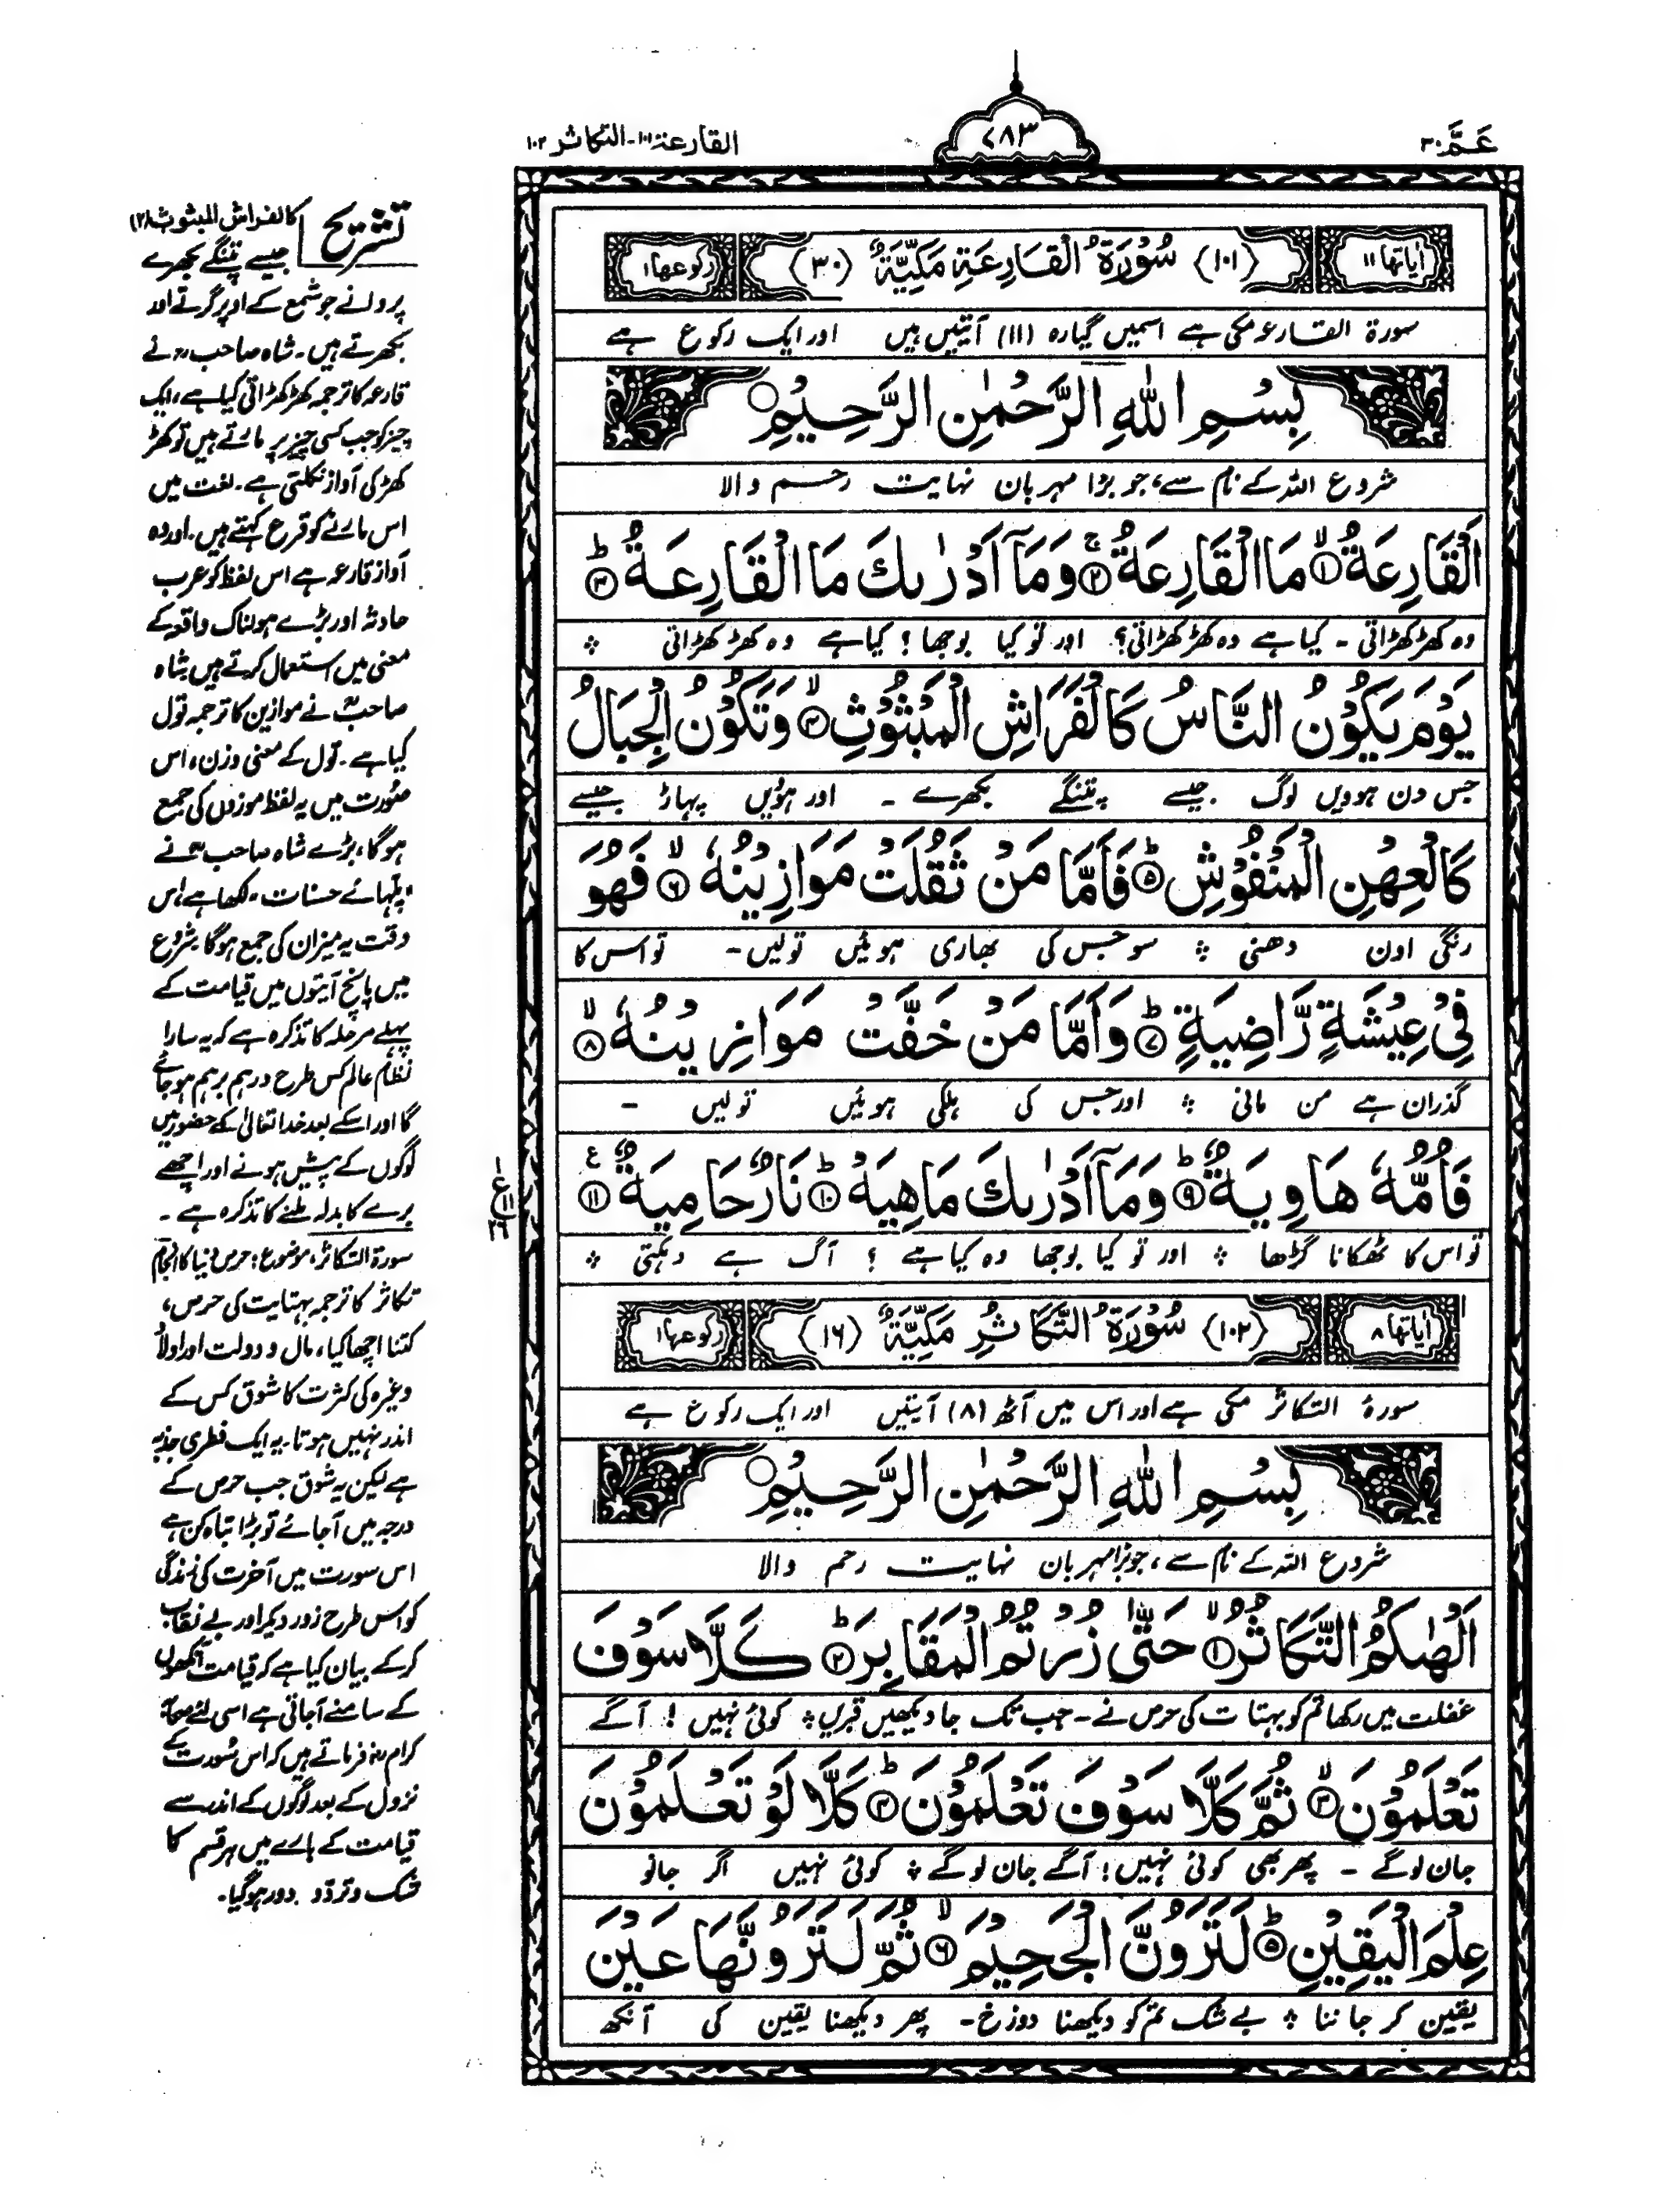 عَمَّ ٣٠
٧٨٣
القارعۃ ١٠١ - التکاثر ١٠٢
اٰیاتها ١١
(١٠١) سُوْرَةُ الْقَارِعَةِ مَكِّيَّةٌ (٣٠)
رکوعها ١
سورۃ القارعہ مکی ہے اسمیں گیارہ (١١) آیتیں ہیں اور ایک رکوع ہے
بِسْمِ اللّٰهِ الرَّحْمٰنِ الرَّحِيْمِ
شروع اللہ کے نام سے، جو بڑا مہربان نہایت رحم والا
اَلْقَارِعَةُ ۙ﴿١﴾ مَا الْقَارِعَةُ ۚ﴿٢﴾ وَمَآ اَدْرٰىكَ مَا الْقَارِعَةُ ؕ﴿٣﴾
وہ کھڑکھڑاتی - کیا ہے وہ کھڑکھڑاتی؟ اور تو کیا بوجھا؟ کیا ہے وہ کھڑکھڑاتی ❊
يَوْمَ يَكُوْنُ النَّاسُ كَالْفَرَاشِ الْمَبْثُوْثِ ۙ﴿٤﴾ وَتَكُوْنُ الْجِبَالُ
جس دن ہوویں لوگ جیسے پتنگے بکھرے - اور ہوئیں پہاڑ جیسے
كَالْعِهْنِ الْمَنْفُوْشِ ؕ﴿٥﴾ فَاَمَّا مَنْ ثَقُلَتْ مَوَازِيْنُهٗ ۙ﴿٦﴾ فَهُوَ
رنگی اون دھنی ❊ سو جس کی بھاری ہوئیں تولیں - تو اس کا
فِيْ عِيْشَةٍ رَّاضِيَةٍ ؕ﴿٧﴾ وَاَمَّا مَنْ خَفَّتْ مَوَازِيْنُهٗ ۙ﴿٨﴾
گذران ہے من مانی ❊ اور جس کی ہلکی ہوئیں تولیں -
فَاُمُّهٗ هَاوِيَةٌ ؕ﴿٩﴾ وَمَآ اَدْرٰىكَ مَاهِيَهْ ؕ﴿١٠﴾ نَارٌ حَامِيَةٌ ﴿١١﴾
تو اس کا ٹھکانا گڑھا ❊ اور تو کیا بوجھا وہ کیا ہے؟ آگ ہے دہکتی ❊
اٰیاتها ٨
(١٠٢) سُوْرَةُ التَّكَاثُرِ مَكِّيَّةٌ (١٦)
رکوعها ١
سورۂ التکاثر مکی ہے اور اس میں آٹھ (٨) آیتیں اور ایک رکوع ہے
بِسْمِ اللّٰهِ الرَّحْمٰنِ الرَّحِيْمِ
شروع اللہ کے نام سے، جو بڑا مہربان نہایت رحم والا
اَلْهٰىكُمُ التَّكَاثُرُ ۙ﴿١﴾ حَتّٰى زُرْتُمُ الْمَقَابِرَ ؕ﴿٢﴾ كَلَّا سَوْفَ
غفلت میں رکھا تم کو بہتات کی حرص نے - جب تک جا دیکھیں قبریں ❊ کوئی نہیں! آگے
تَعْلَمُوْنَ ۙ﴿٣﴾ ثُمَّ كَلَّا سَوْفَ تَعْلَمُوْنَ ؕ﴿٤﴾ كَلَّا لَوْ تَعْلَمُوْنَ
جان لوگے - پھر بھی کوئی نہیں! آگے جان لوگے ❊ کوئی نہیں اگر جانو
عِلْمَ الْيَقِيْنِ ؕ﴿٥﴾ لَتَرَوُنَّ الْجَحِيْمَ ۙ﴿٦﴾ ثُمَّ لَتَرَوُنَّهَا عَيْنَ
یقین کر جاننا ❊ بے شک تم کو دیکھنا دوزخ - پھر دیکھنا یقین کی آنکھ
تشریح
کالفراش المبثوث (٢)
جیسے پتنگے بکھرے
پروانے جو شمع کے اوپر گرتے اور
بکھرتے ہیں۔ شاہ صاحبؒ نے
قارعہ کا ترجمہ کھڑکھڑاتی کیا ہے، ایک
چیز کو جب کسی چیز پر مارتے ہیں تو کھڑ
کھڑ کی آواز نکلتی ہے۔ لغت میں
اس مارنے کو قرع کہتے ہیں۔ اور وہ
آواز قارعہ ہے اس لفظ کو عرب
حادثہ اور بڑے ہولناک واقعہ کے
معنی میں استعمال کرتے ہیں شاہ
صاحبؒ نے موازین کا ترجمہ تول
کیا ہے۔ تول کے معنی وزن، اس
صورت میں یہ لفظ موزوں کی جمع
ہوگا، بڑے شاہ صاحبؒ نے
پلّہائے حسنات۔ لکھا ہے اس
وقت یہ میزان کی جمع ہوگا شروع
میں پانچ آیتوں میں قیامت کے
پہلے مرحلہ کا تذکرہ ہے کہ یہ سارا
نظام عالم کس طرح درہم برہم ہو جائے
گا اور اسکے بعد خدا تعالیٰ کے حضور میں
لوگوں کے پیش ہونے اور اچھے
برے کا بدلہ ملنے کا تذکرہ ہے -
سورۃ التکاثر، موضوع: حرص دنیا کا انجام
تکاثر کا ترجمہ بہتایت کی حرص،
کتنا اچھا کیا، مال و دولت اور اولاد
وغیرہ کی کثرت کا شوق کس کے
اندر نہیں ہوتا۔ یہ ایک فطری جذبہ
ہے لیکن یہ شوق جب حرص کے
درجہ میں آجائے تو بڑا تباہ کن ہے
اس سورت میں آخرت کی زندگی
کو اس طرح زور دیکر اور بے نقاب
کرکے بیان کیا ہے کہ قیامت آنکھوں
کے سامنے آجاتی ہے اسی لئے صحابہ
کرامؓ فرماتے ہیں کہ اس سورت کے
نزول کے بعد لوگوں کے اندر سے
قیامت کے بارے میں ہر قسم کا
شک و تردد دور ہوگیا۔